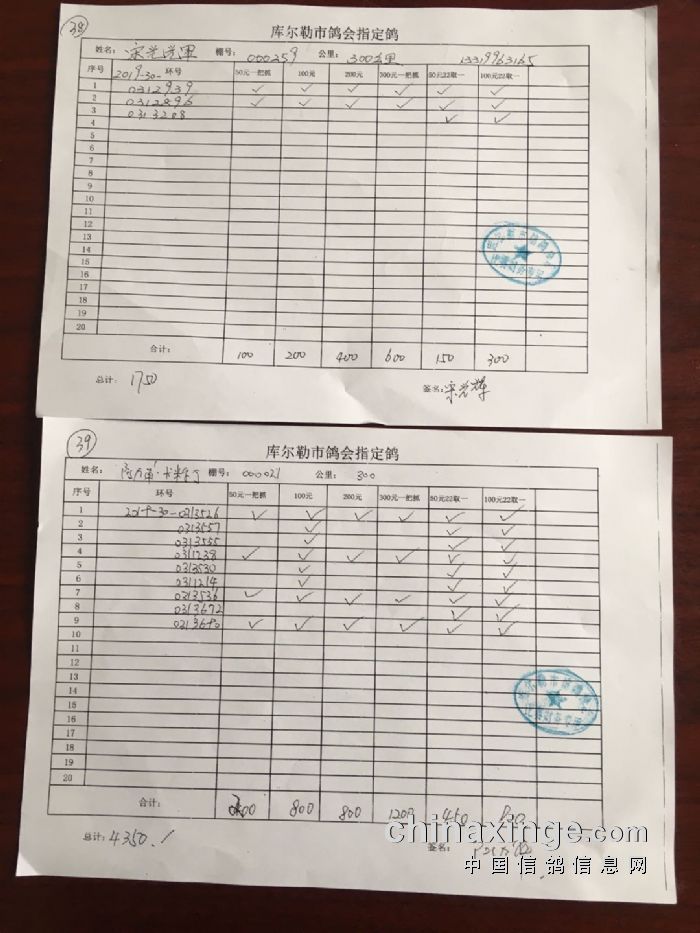 38
库尔勒市鸽会指定鸽
姓名: 棚号: 000259 公里: 300公里 13319963165
序号 2019-30- 环号 50元一把抓 100元 200元 300元一把抓 50元22取一 100元22取一
1 0312939 ✓ ✓ ✓ ✓ ✓ ✓
2 0312896 ✓ ✓ ✓ ✓ ✓ ✓
3 0313208 ✓ ✓
4
5
6
7
8
9
10
11
12
13
14
15
16
17
18
19
20
合计: 100 200 400 600 150 300
总计: 1750 签名: 宋光辉
39
库尔勒市鸽会指定鸽
姓名: 棚号: 000021 公里: 300
序号 环号 50元一把抓 100元 200元 300元一把抓 50元22取一 100元22取一
1 2019-30-0313526 ✓ ✓ ✓ ✓ ✓ ✓
2 0313557 ✓ ✓ ✓
3 0313555 ✓ ✓ ✓
4 0311238 ✓ ✓ ✓ ✓ ✓ ✓
5 0313530 ✓ ✓ ✓
6 0311214 ✓ ✓ ✓
7 0313536 ✓ ✓ ✓ ✓ ✓ ✓
8 0313672 ✓ ✓
9 ✓ ✓ ✓ ✓ ✓ ✓
10
11
12
13
14
15
16
17
18
19
20
合计: 800 800 1200 450
总计: 4350. 签名:
chinaxinge.com
中国信鸽信息网